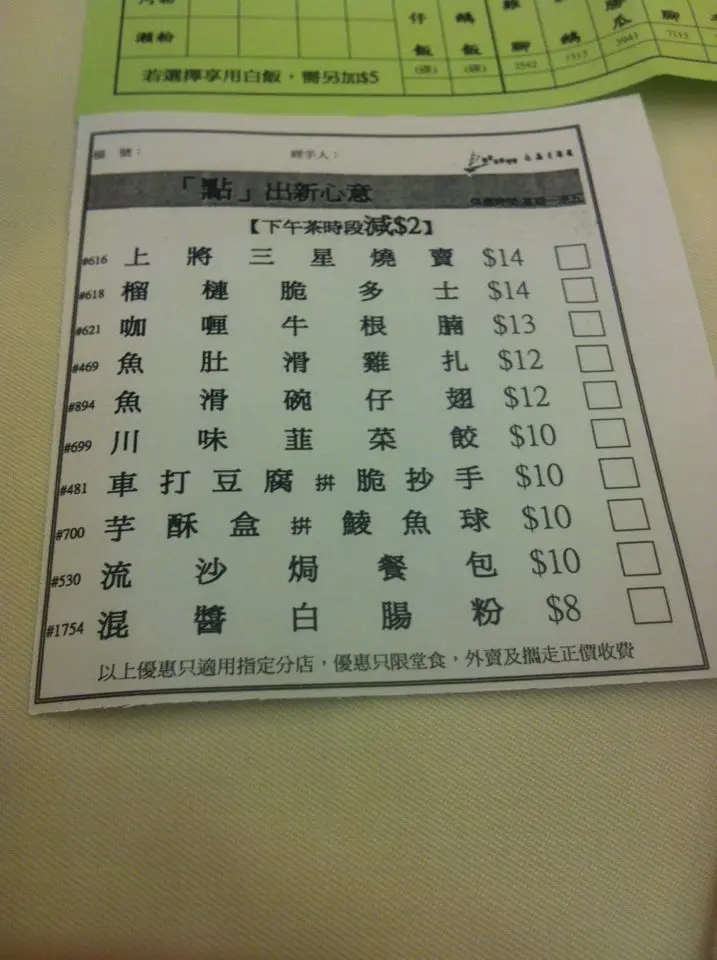 瀨粉
仔飯
鵝飯
若選擇享用白飯，需另加$5
檯 號：
經手人：
「點」出新心意
【下午茶時段減$2】
#616 上將三星燒賣 $14
#618 榴槤脆多士 $14
#621 咖喱牛根腩 $13
#469 魚肚滑雞扎 $12
#894 魚滑碗仔翅 $12
#699 川味韮菜餃 $10
#481 車打豆腐拼脆抄手 $10
#700 芋酥盒拼鯪魚球 $10
#530 流沙焗餐包 $10
#1754 混醬白腸粉 $8
以上優惠只適用指定分店，優惠只限堂食，外賣及攜走正價收費